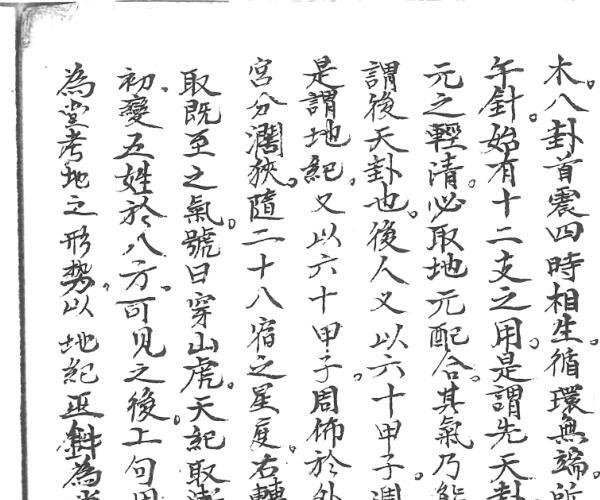 木。八卦首震四時相生。循環無端。所
午針。始有十二支之用。是謂先天卦
元之輕清。必取地元配合。其氣乃能
謂後天卦也。後人又以六十甲子週
是謂地紀。又以六十甲子。周佈於外
宮分濶狹。隨二十八宿之星度。右轉
取既至之氣。號曰穿山虎。天紀取
初。變五姓於八方。可見之後。工句用
為堂考地之形勢。以地紀正斜為